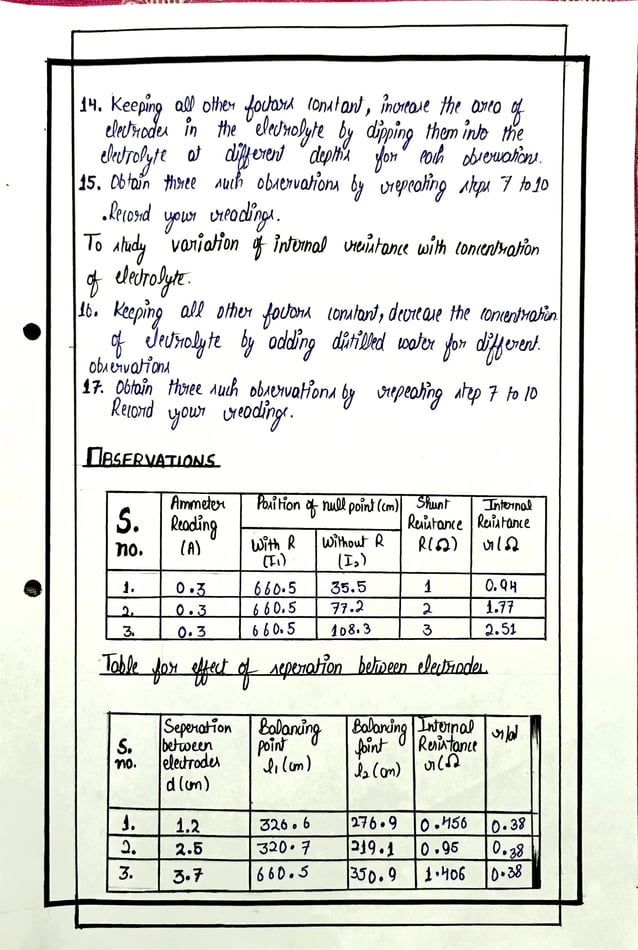 14. Keeping all other factors constant, increase the area of
electrodes in the electrolyte by dipping them into the
electrolyte at different depths for each observations.
15. Obtain three such observations by repeating steps 7 to 10
.Record your readings.
To study variation of internal resistance with concentration
of electrolyte.
16. Keeping all other factors constant, decrease the concentration
of electrolyte by adding distilled water for different.
observations
17. Obtain three such observations by repeating step 7 to 10
Record your readings.
OBSERVATIONS
S. no. Ammeter Reading (A) Position of null point (cm) With R (I₁) Without R (I₂) Shunt Resistance R(Ω) Internal Resistance r(Ω
1. 0.3 660.5 35.5 1 0.94
2. 0.3 660.5 77.2 2 1.77
3. 0.3 660.5 108.3 3 2.51
Table for effect of seperation between electrodes
S. no. Seperation between electrodes d (cm) Balancing point l₁ (cm) Balancing point l₂ (cm) Internal Resistance r(Ω r/d
1. 1.2 326.6 276.9 0.456 0.38
2. 2.5 320.7 219.1 0.95 0.38
3. 3.7 660.5 350.9 1.406 0.38